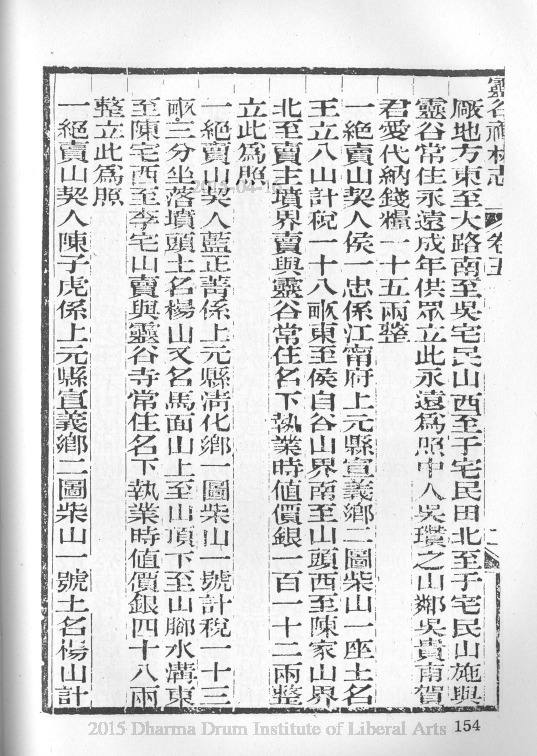 靈谷禪林志 卷五 二
厰地方東至大路南至吳宅民山西至于宅民田北至于宅民山施與
靈谷常住永遠成年供眾立此永遠爲照中人吳瓚之山鄰吳貴甫賀
君愛代納錢糧一十五兩整
一絕賣山契人侯一忠係江甯府上元縣宣義鄉二圖柴山一座土名
王立八山計稅一十八畝東至侯自谷山界南至山頭西至陳家山界
北至賣主墳界賣與靈谷常住名下執業時値價銀一百一十二兩整
立此爲照
一絕賣山契人藍正善係上元縣清化鄉一圖柴山一號計稅一十三
畝三分坐落墳頭土名楊山又名馬面山上至山頂下至山腳水溝東
至陳宅西至李宅山賣與靈谷寺常住名下執業時値價銀四十八兩
整立此爲照
一絕賣山契人陳子虎係上元縣宣義鄉二圖柴山一號土名楊山計
2015 Dharma Drum Institute of Liberal Arts 154